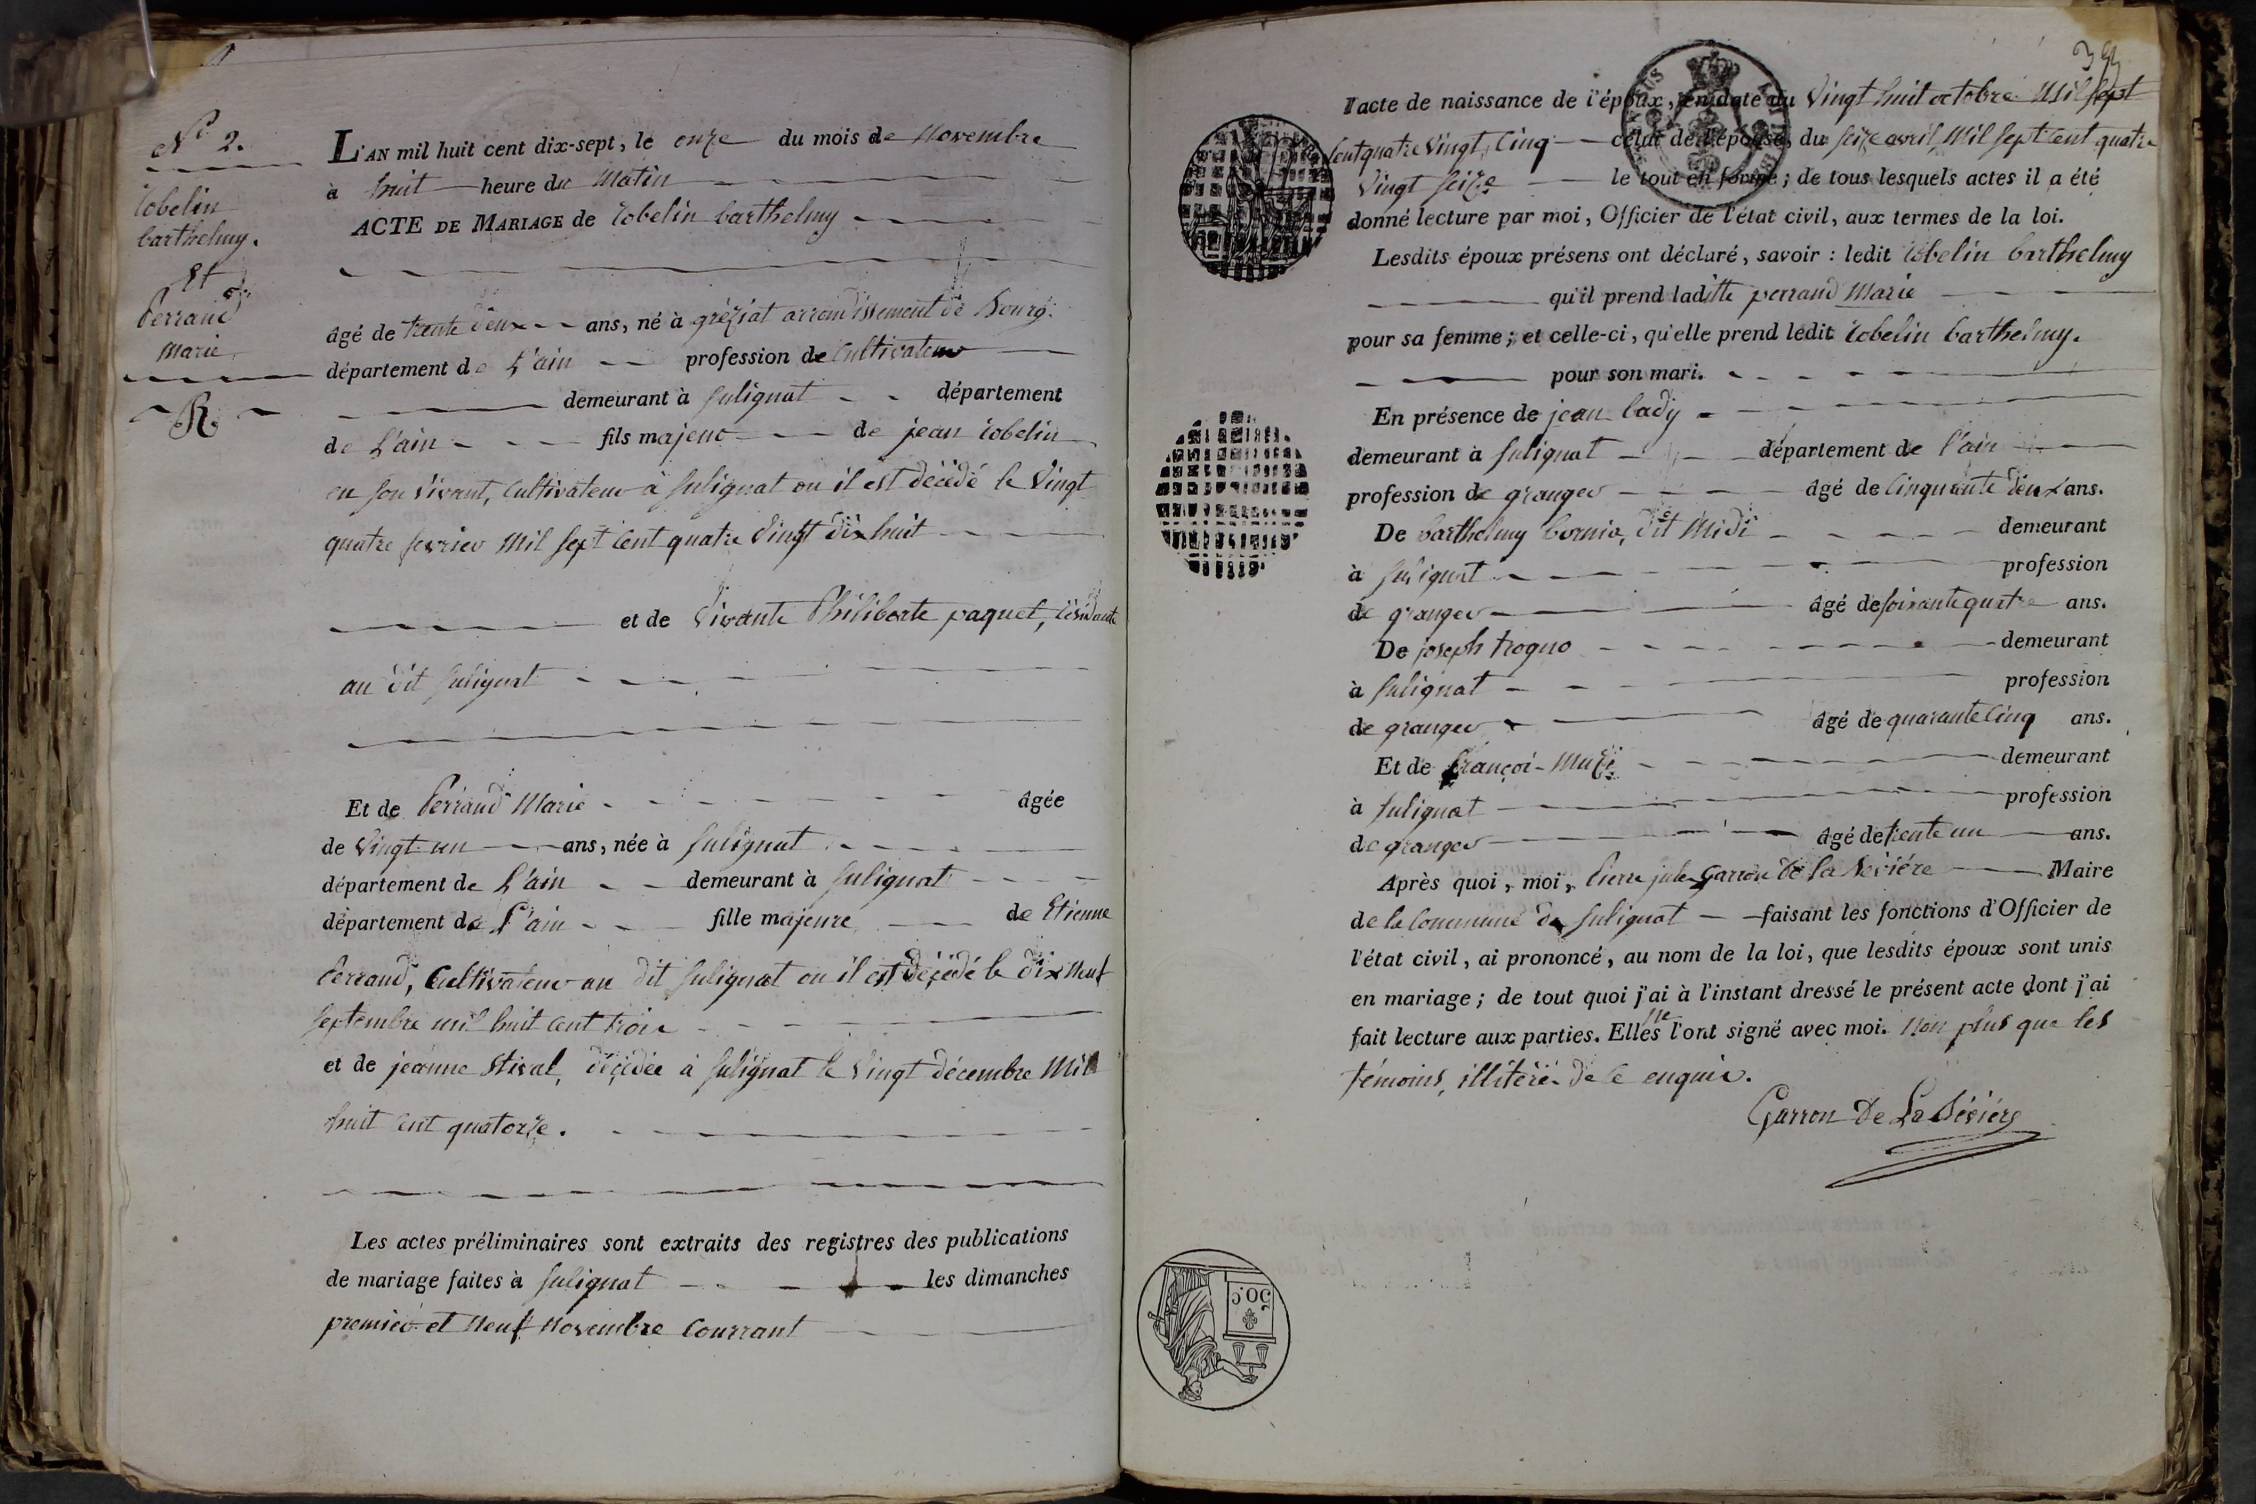 N° 2.
Cobelin
barthelmy.
Et
Perraud
Marie
R
L'AN mil huit cent dix-sept, le onze du mois de Novembre
à huit heure du Matin
ACTE DE MARIAGE de Cobelin barthelmy
âgé de trente deux ans, né à gréziat arrondissement de Bourg.
département de L'ain profession de Cultivateur
demeurant à Sulignat département
de L'ain fils majeur de jean Cobelin
en son vivant, Cultivateur à Sulignat ou il est décédé le Vingt
quatre fevrier Mil Sept Cent quatre Vingt dix huit
et de Vivante Philiberte paquet, résidante
au dit Sulignat
Et de Perraud Marie âgée
de Vingt un ans, née à Sulignat
département de L'ain demeurant à Sulignat
département de L'ain fille majeure de Etienne
Perraud, Cultivateur au dit Sulignat ou il est décédé le dix Neuf
Septembre mil huit cent trois
et de jeanne Stival, décédée à Sulignat le Vingt décembre Mil
huit cent quatorze.
Les actes préliminaires sont extraits des registres des publications
de mariage faites à Sulignat les dimanches
premier et Neuf Novembre Courrant
l'acte de naissance de l'époux, en date du Vingt huit octobre Mil Sept
Cent quatre Vingt Cinq celui de l'épouse, du Seize avril Mil Sept Cent quatre
Vingt Seize le tout en forme; de tous lesquels actes il a été
donné lecture par moi, Officier de l'état civil, aux termes de la loi.
Lesdits époux présens ont déclaré, savoir : ledit Cobelin barthelmy
qu'il prend laditte perraud Marie
pour sa femme; et celle-ci, qu'elle prend ledit Cobelin barthelmy.
pour son mari.
En présence de jean bady
demeurant à Sulignat département de l'ain
profession de granger âgé de Cinquante deux ans.
De barthelmy Cornia, dit Midi demeurant
à Suliguat profession
de granger âgé de soixante quatre ans.
De joseph trogno demeurant
à Sulignat profession
de granger âgé de quarante Cinq ans.
Et de françoi demeurant
à Sulignat profession
de granger âgé de trente un ans.
Après quoi, moi, Pierre jule Garron de la Beviére Maire
de la Commune de Sulignat faisant les fonctions d'Officier de
l'état civil, ai prononcé, au nom de la loi, que lesdits époux sont unis
en mariage; de tout quoi j'ai à l'instant dressé le présent acte dont j'ai
fait lecture aux parties. Elles ne l'ont signé avec moi. Non plus que les
témoins, illitéré de ce enquis.
Garron De La Béviére
50.C